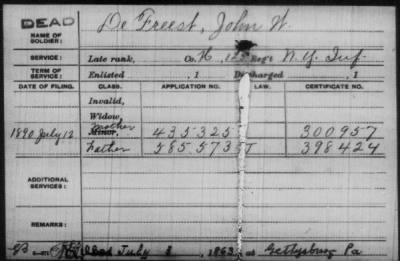 DEAD
NAME OF SOLDIER:
De Freest, John W.
SERVICE: Late rank, Co. H, 125 Reg't N.Y. Inf.
TERM OF SERVICE: Enlisted , 1 Discharged , 1
DATE OF FILING. CLASS. APPLICATION NO. LAW. CERTIFICATE NO.
Invalid,
Widow,
Mother
1890 July 12 Minor, 435325 300957
Father 585573 398424
ADDITIONAL SERVICES:
REMARKS:
Died July 1863 at Gettysburg Pa